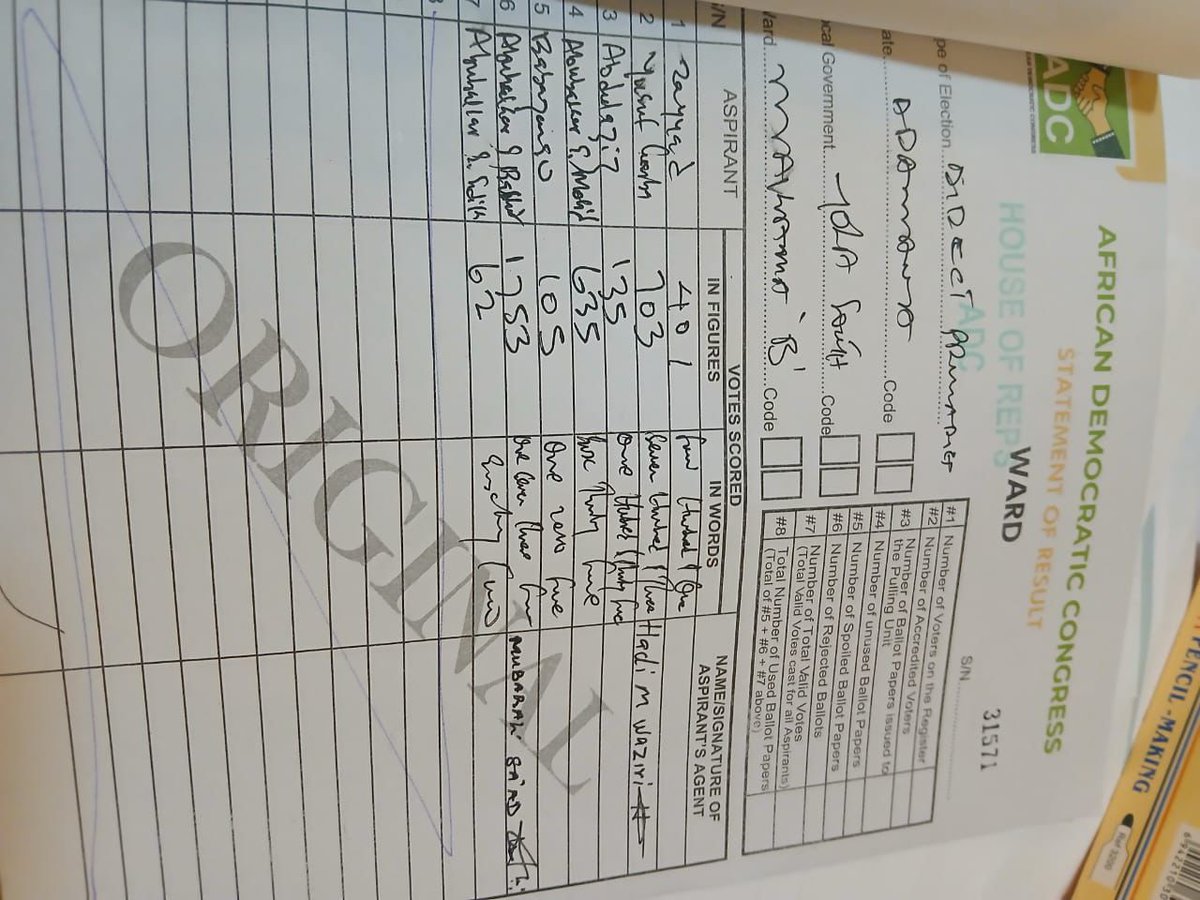 ADC
AFRICAN DEMOCRATIC CONGRESS
STATEMENT OF RESULT
ADC
HOUSE OF REPS
WARD
S/N............ 31571
pe of Election....DIRECT PRIMARIES
ate....ADAMAWA....Code
cal Government....YOLA South....Code
ard....MAKAMA 'B'....Code
#1 Number of Voters on the Register
#2 Number of Accredited Voters
#3 Number of Ballot Papers issued to the Pulling Unit
#4 Number of unused Ballot Papers
#5 Number of Spoiled Ballot Papers
#6 Number of Rejected Ballots
#7 Number of Total Valid Votes
(Total Valid Votes cast for all Aspirants)
#8 Total Number of Used Ballot Papers
(Total of #5 + #6 + #7 above)
/N ASPIRANT VOTES SCORED NAME/SIGNATURE OF ASPIRANT'S AGENT
IN FIGURES IN WORDS
1 Zayyad 401 four hundred & One
2 Yusuf 703 Seven hundred & Three Hadi m waziri
3 Abdulaziz 135 One Hundred & thirty five
4 Abubakar S. Mohd 635 Six Thirty five
5 Babazango 105 One zero five
6 Abubakar 1753 One Seven MUBARAK SA'AD
7 62 Sixty Two
8
ORIGINAL
PENCIL-MAKING